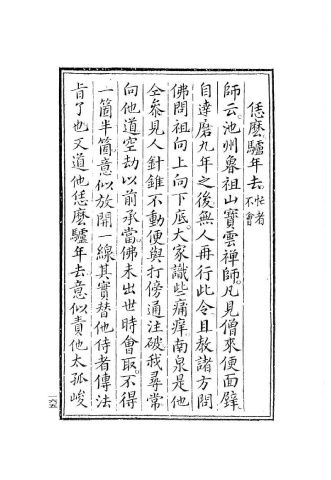 恁麼驢年去。忙者不會
師云。池州魯祖山寶雲禪師。凡見僧來便面壁。
自達磨九年之後。無人再行此令。且教諸方問
佛問祖向上向下底。大家識些痛痒。南泉是他
仝叅見人針錐不動。便與打傍通注破。我尋常
向他道空劫以前承當。佛未出世時會取。不得
一箇半箇。意似放開一線。其實替他侍者傳法
旨了也。又道他恁麼驢年去。意似責他太孤峻
一六五